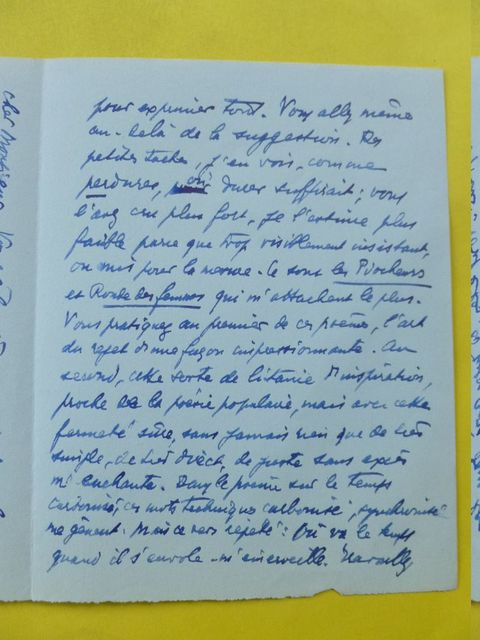 cher Monsieur
pour exprimer tout. Vous allez même
au-delà de la suggestion. Des
petites taches, j'en vois, comme
perdures, où durer suffirait ; vous
l'avez cru plus fort. Je l'estime plus
faible parce que trop visiblement insistant,
ou mis pour la mesure. Ce sont les Piocheurs
et Route des femmes qui m'attachent le plus.
Vous pratiquez au premier de ces poèmes, l'art
du rejet d'une façon impressionnante. Au
second, cette sorte de litanie d'inspiration,
proche de la poésie populaire, mais avec cette
fermeté sûre, sans jamais rien que de très
simple, de très direct, de juste sans excès
m'enchante. Dans le poème sur le temps
carbonisé, ces mots techniques carbonisé, synchronisé
me gênent. Mais ce vers répété : Où va le temps
quand il s'envole m'émerveille.